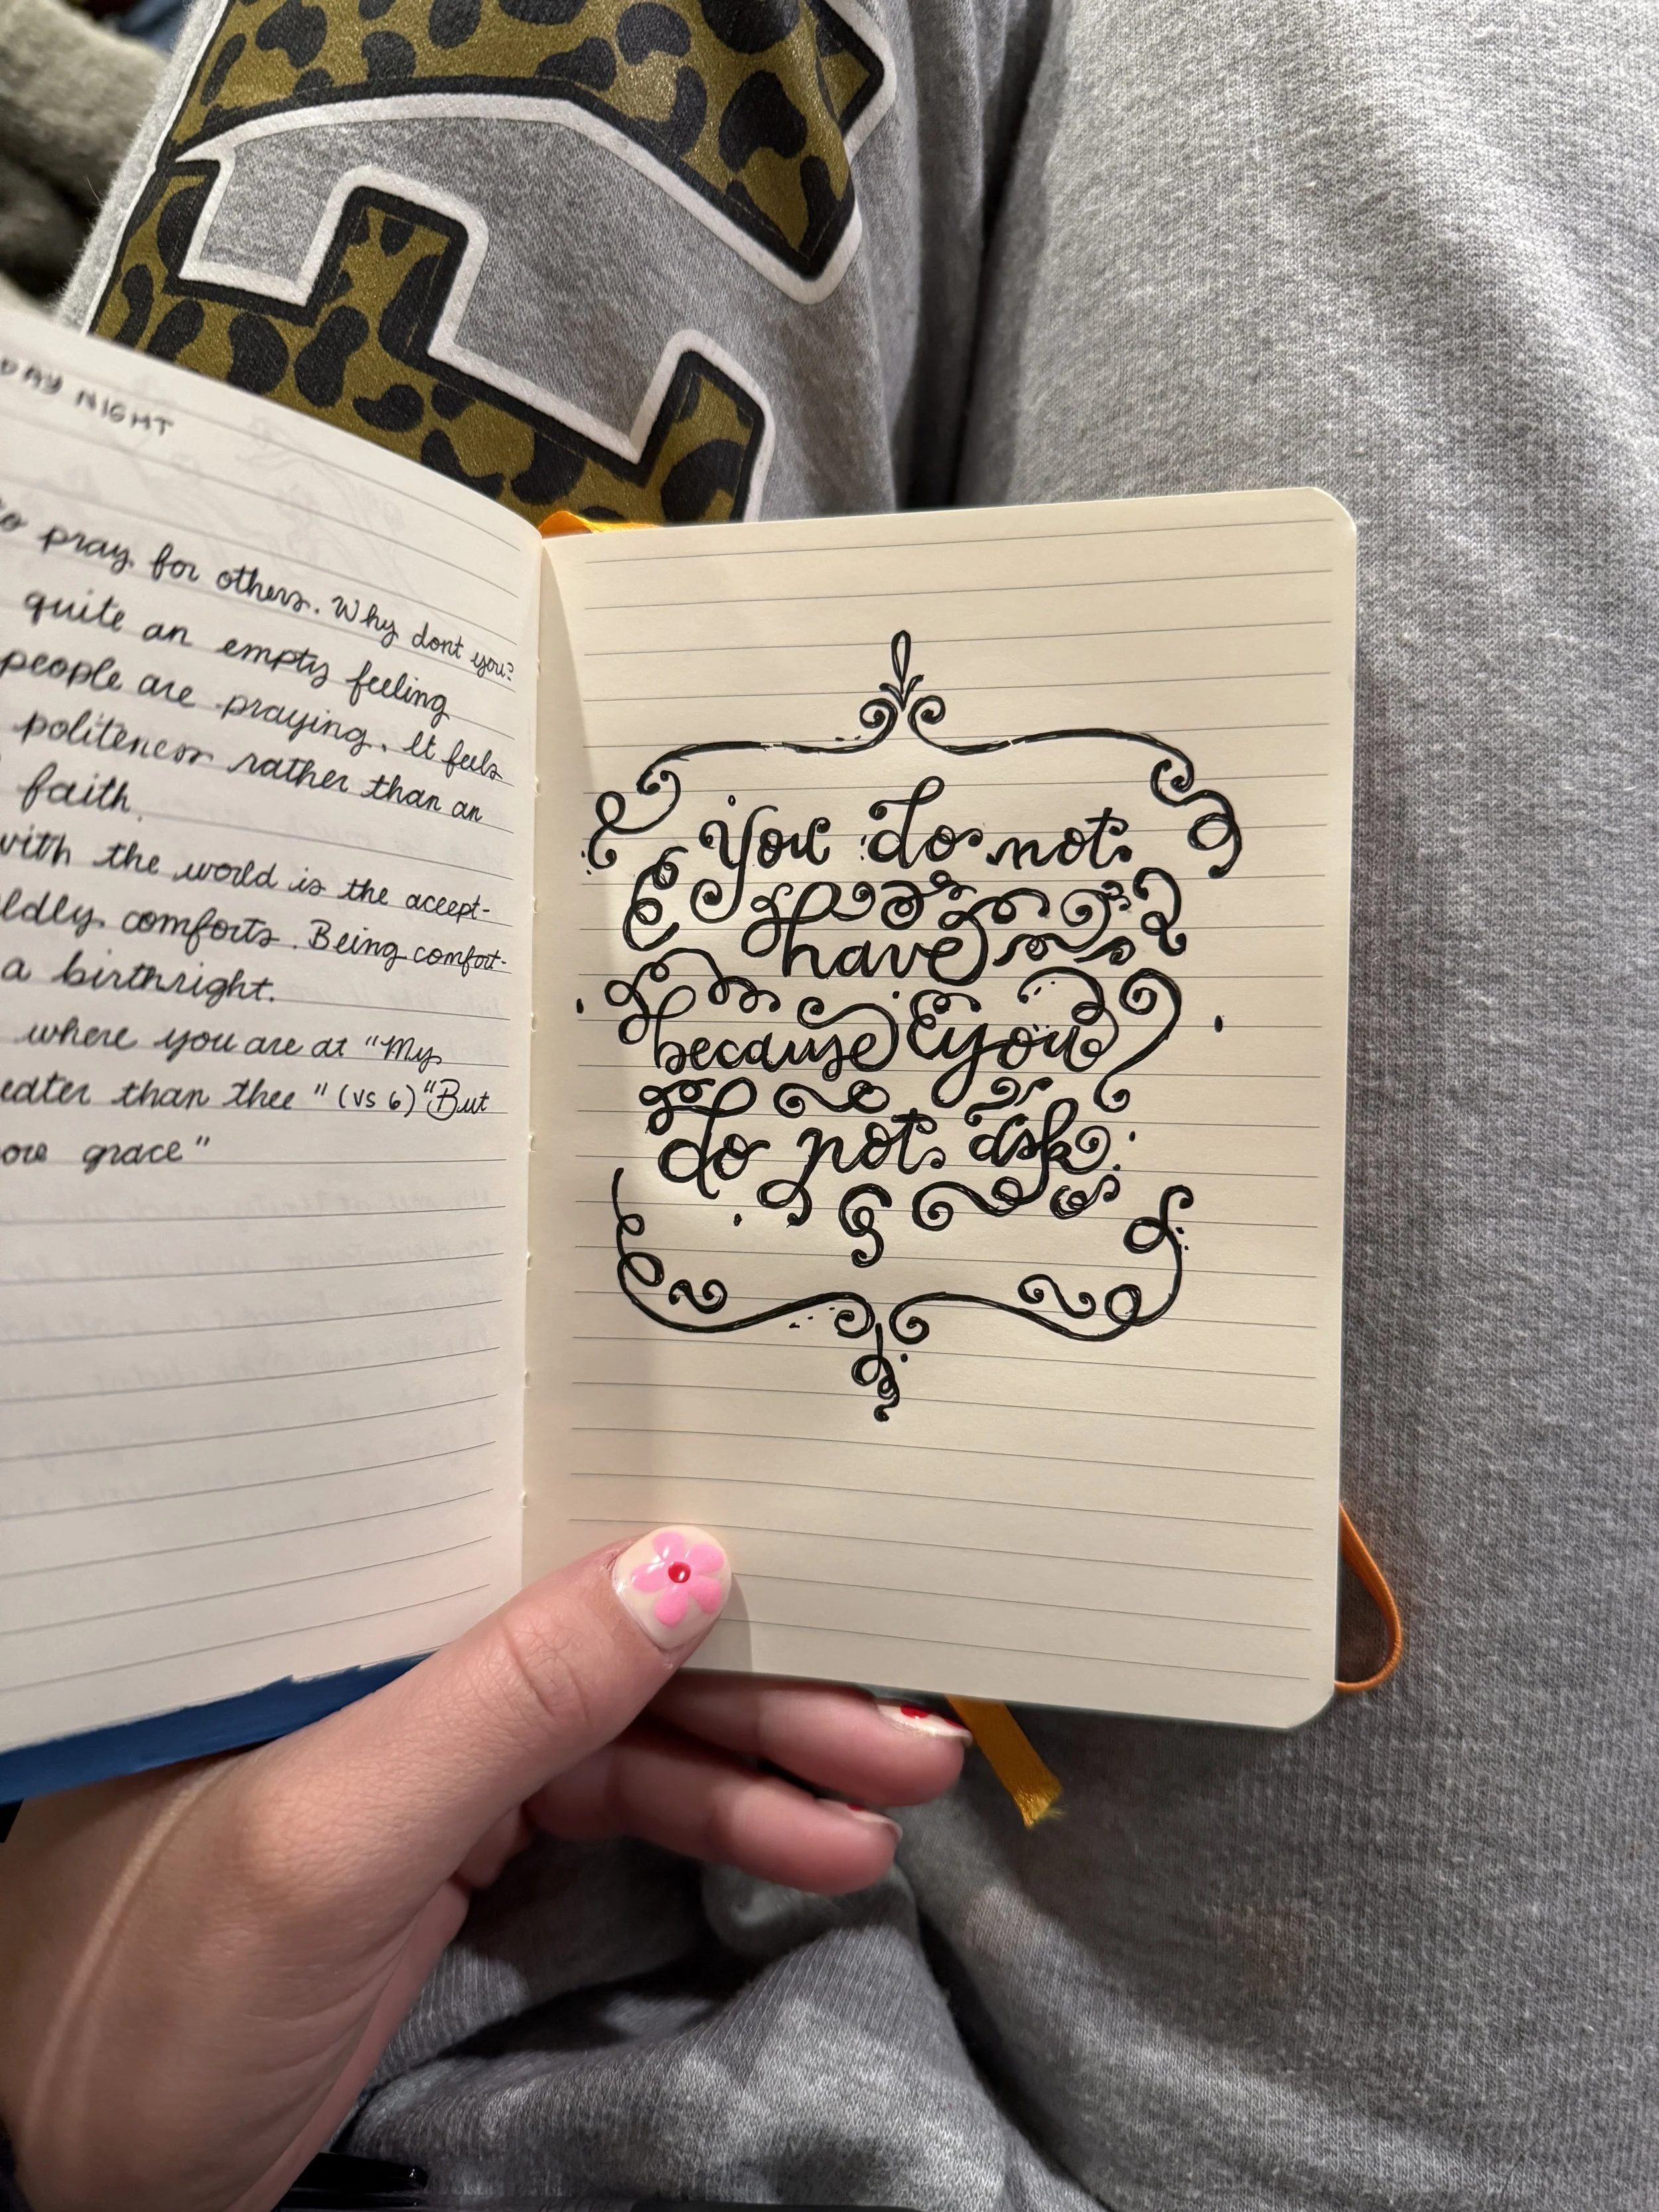 DAY NIGHT
to pray for others. Why dont you?
quite an empty feeling
people are praying. It feels
politeness rather than an
faith.
with the world is the accept-
ldly comforts. Being comfort-
a birthright.
where you are at "My
eater than thee" (vs 6) "But
ore grace"
You do not
have
because you
do not ask.